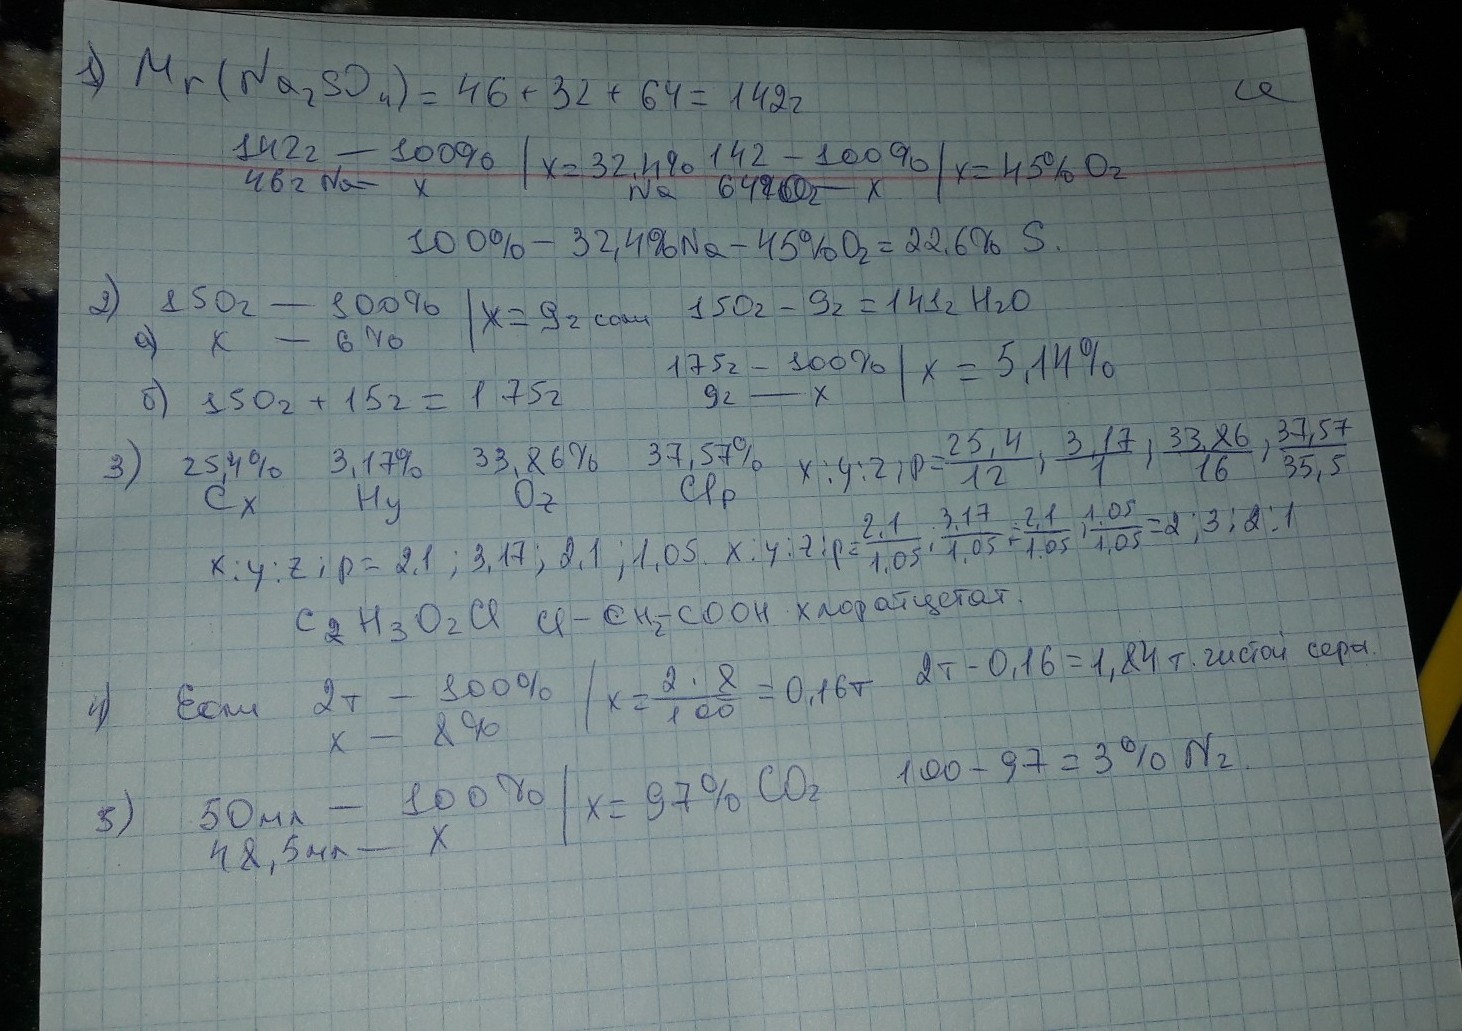 1) Mr(Na₂SO₄) = 46 + 32 + 64 = 142г
142г — 100% | x = 32,4% Na 142 — 100% | x = 45% O₂
46г Na — x 64г O₂ — x
100% — 32,4% Na — 45% O₂ = 22,6% S.
2) 150г — 100% | x = 9г соли 150г — 9г = 141г H₂O
а) x — 6%
б) 150г + 15г = 175г 175г — 100% | x = 5,14%
9г — x
3) 25,4% 3,17% 33,86% 37,57% x:y:z:p = 25,4/12 ; 3,17/1 ; 33,86/16 ; 37,57/35,5
Cx Hy Oz Clp
x:y:z:p = 2,1 ; 3,17 ; 2,1 ; 1,05. x:y:z:p = 2,1/1,05 : 3,17/1,05 : 2,1/1,05 : 1,05/1,05 = 2:3:2:1
C₂H₃O₂Cl Cl–CH₂–COOH хлорайцетат.
4) Если 2т — 100% | x = 2·8/100 = 0,16т 2т – 0,16 = 1,84 т. чистой серы.
x — 8%
5) 50мл — 100% | x = 97% CO₂ 100 – 97 = 3% N₂.
48,5мл — x